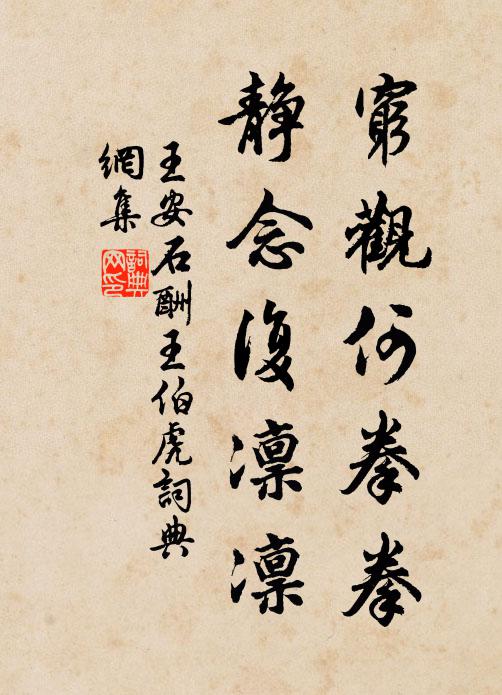 窮觀何拳拳
静念復凛凛
王安石酬王伯虎詞典
網集
詞典
网印